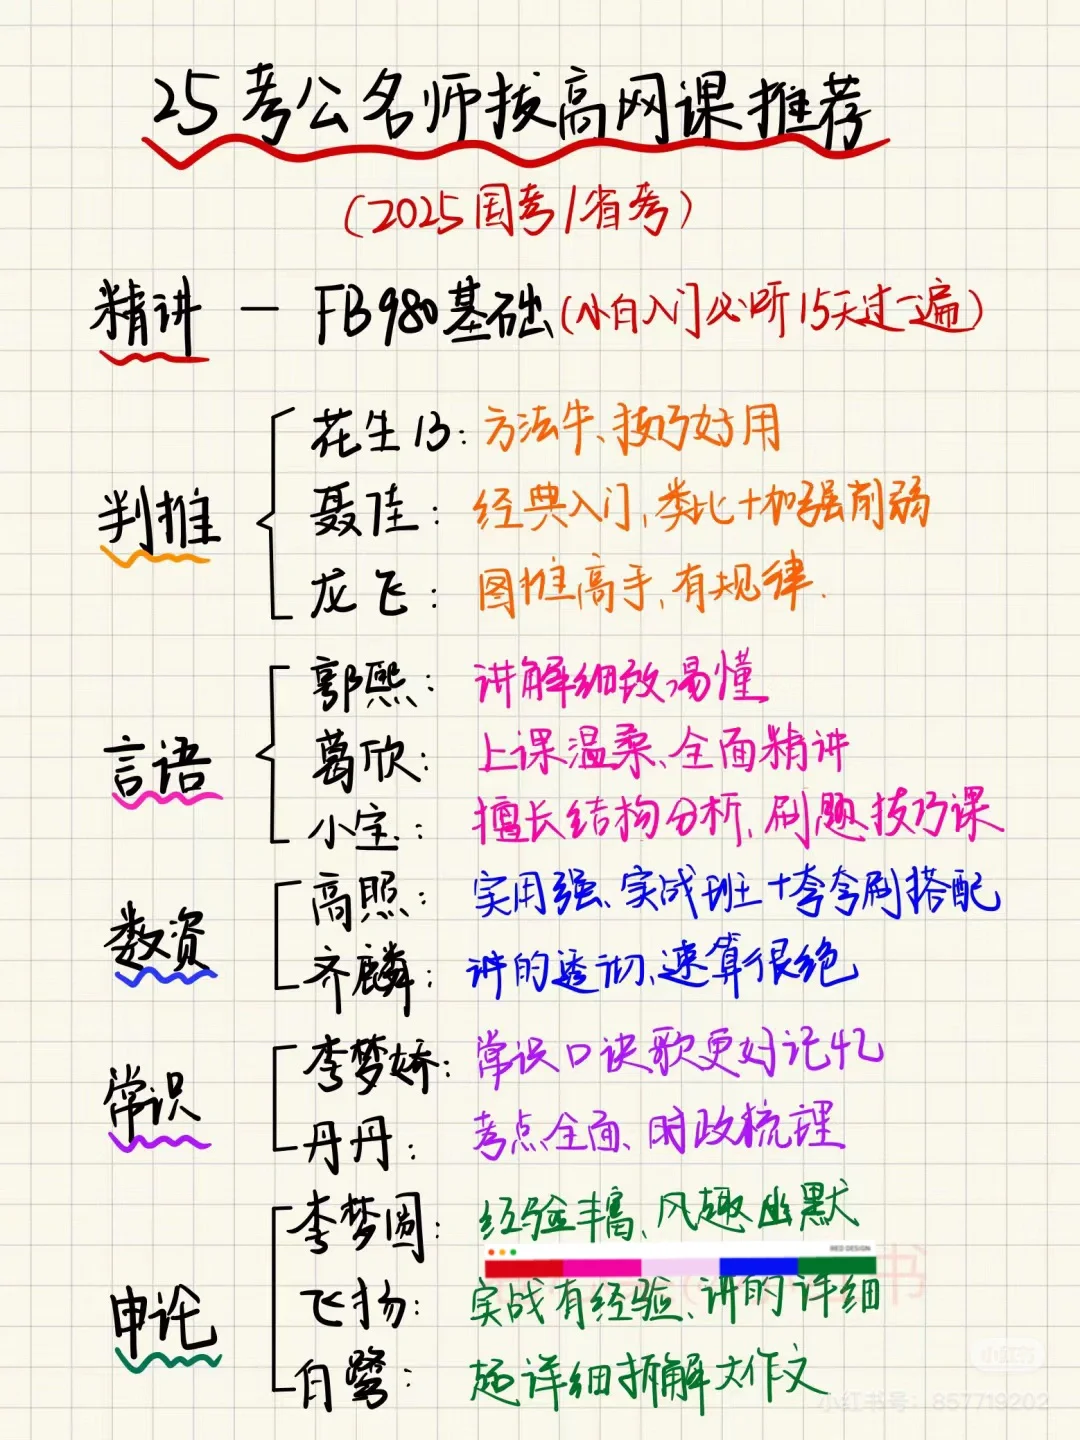 25考公名师拔高网课推荐
(2025国考/省考)
精讲 — FB980基础(小白入门必听15天过一遍)
判推
花生13: 方法牛、技巧好用
聂佳: 经典入门、类比+加强削弱
龙飞: 图推高手、有规律.
言语
郭熙: 讲解细致易懂
葛欣: 上课温柔、全面精讲
小宝.: 擅长结构分析、刷题技巧课
数资
高照: 实用强、实战班+夸夸刷搭配
齐麟: 讲的透彻、速算很绝
常识
李梦娇: 常识口诀歌更好记忆
丹丹: 考点全面、时政梳理
申论
李梦圆: 经验丰富、风趣幽默
RED DESIGN
飞扬: 实战有经验、讲的详细
白鹭: 超详细拆解大作文
小红书
小红书号: 857719202